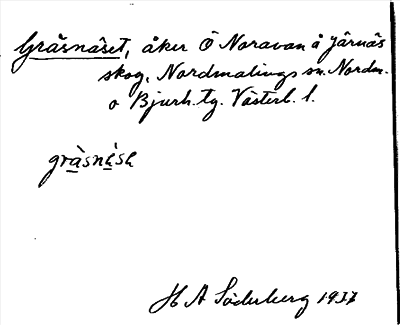 Gräsnäset, åker Ö Noravan å Järnäs
skog, Nordmalings sn. Nordm.
o Bjurh. tg. Västerb. l.
gràsnèsh
H A Söderberg 1937